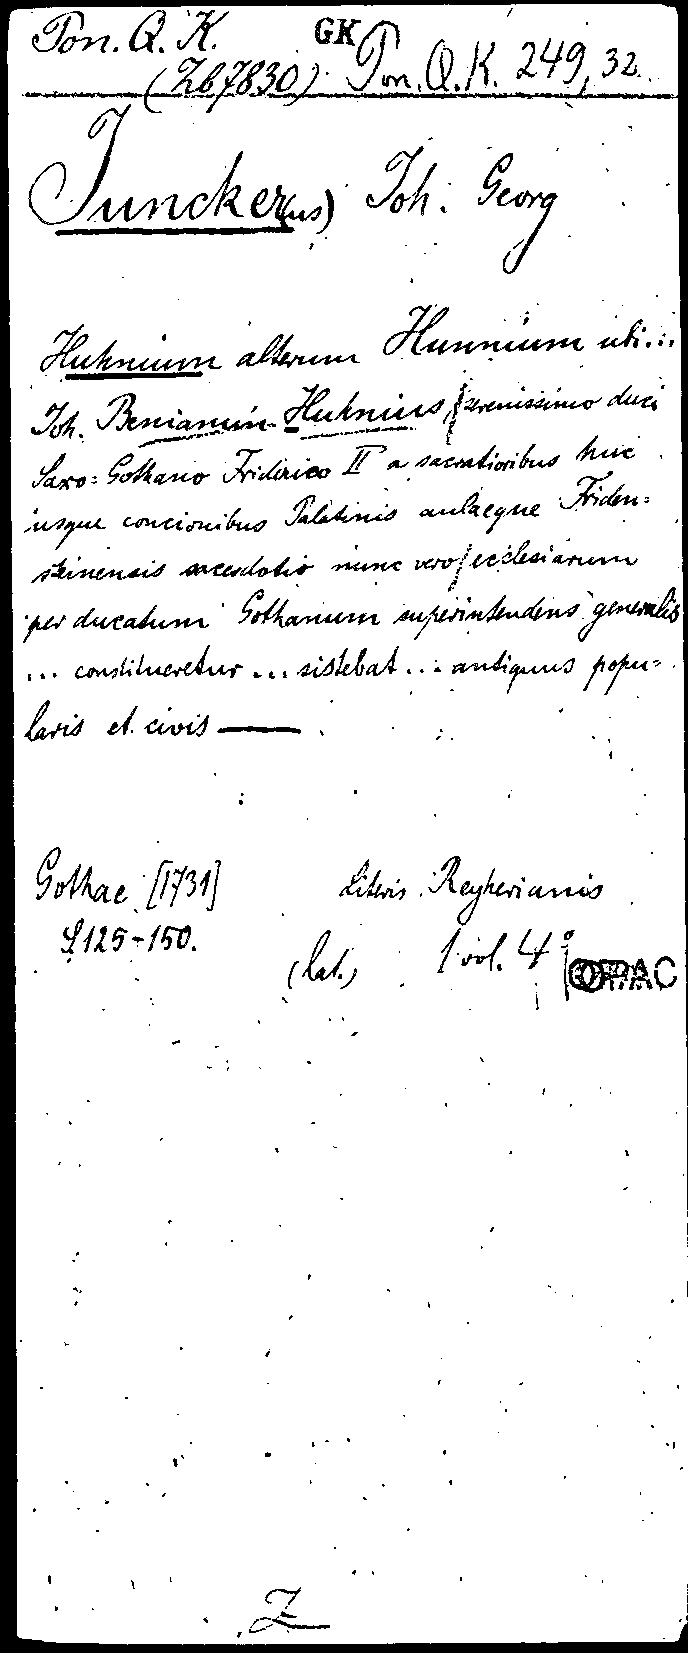 Pon. Q. K.
GK
(Zb7830) Pon. Q. K. 249, 32.
Juncker(us) Joh. Georg
Huhnium alterum Hunnium ubi...
Joh. Beniamin Huhnius serenissimo duci
Saxo-Gothano Friderico II a sacratioribus huc
usque concionibus Palatinis aulaeque Friden-
steinensis sacerdotio nunc vero ecclesiarum
per ducatum Gothanum superintendens generalis
... constitueretur ... sistebat ... antiquus popu-
laris et civis —
Gothae [1731] Literis Reyherianis
S 125-150.
(lat.) 1 vol. 4°
OPAC
Z